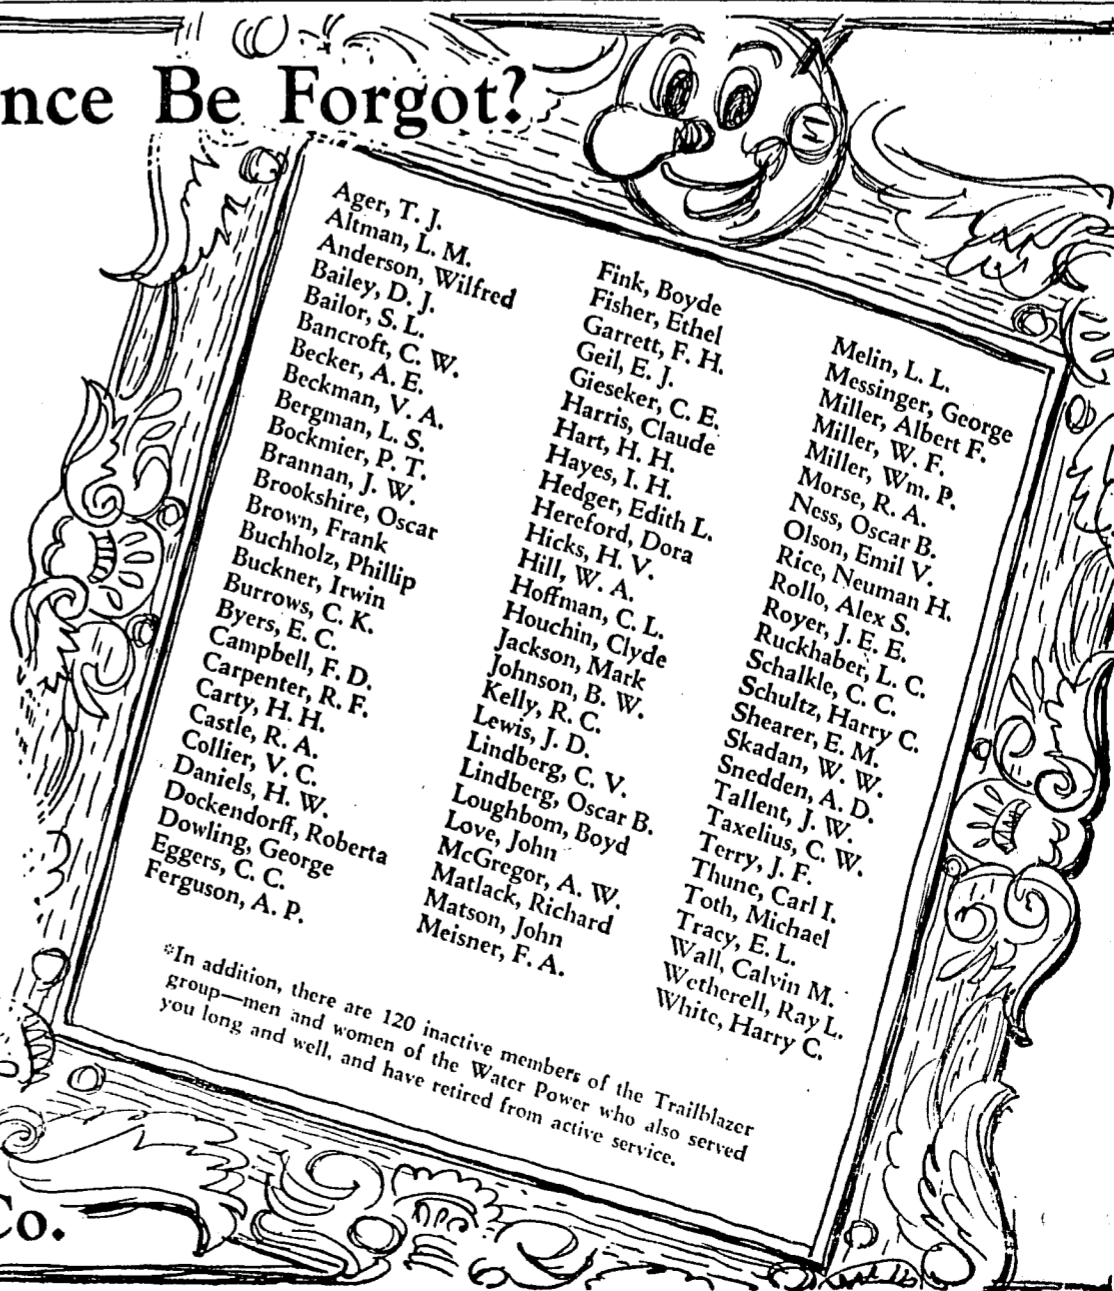 nce Be Forgot?
Ager, T. J.
Altman, L. M.
Anderson, Wilfred
Bailey, D. J.
Bailor, S. L.
Bancroft, C. W.
Becker, A. E.
Beckman, V. A.
Bergman, L. S.
Bockmier, P. T.
Brannan, J. W.
Brookshire, Oscar
Brown, Frank
Buchholz, Phillip
Buckner, Irwin
Burrows, C. K.
Byers, E. C.
Campbell, F. D.
Carpenter, R. F.
Carty, H. H.
Castle, R. A.
Collier, V. C.
Daniels, H. W.
Dockendorff, Roberta
Dowling, George
Eggers, C. C.
Ferguson, A. P.
Fink, Boyde
Fisher, Ethel
Garrett, F. H.
Geil, E. J.
Gieseker, C. E.
Harris, Claude
Hart, H. H.
Hayes, I. H.
Hedger, Edith L.
Hereford, Dora
Hicks, H. V.
Hill, W. A.
Hoffman, C. L.
Houchin, Clyde
Jackson, Mark
Johnson, B. W.
Kelly, R. C.
Lewis, J. D.
Lindberg, C. V.
Lindberg, Oscar B.
Loughbom, Boyd
Love, John
McGregor, A. W.
Matlack, Richard
Matson, John
Meisner, F. A.
Melin, L. L.
Messinger, George
Miller, Albert F.
Miller, W. F.
Miller, Wm. P.
Morse, R. A.
Ness, Oscar B.
Olson, Emil V.
Rice, Neuman H.
Rollo, Alex S.
Royer, J. E. E.
Ruckhaber, L. C.
Schalkle, C. C.
Schultz, Harry C.
Shearer, E. M.
Skadan, W. W.
Snedden, A. D.
Tallent, J. W.
Taxelius, C. W.
Terry, J. F.
Thune, Carl I.
Toth, Michael
Tracy, E. L.
Wall, Calvin M.
Wetherell, Ray L.
White, Harry C.
*In addition, there are 120 inactive members of the Trailblazer
group—men and women of the Water Power who also served
you long and well, and have retired from active service.
Co.